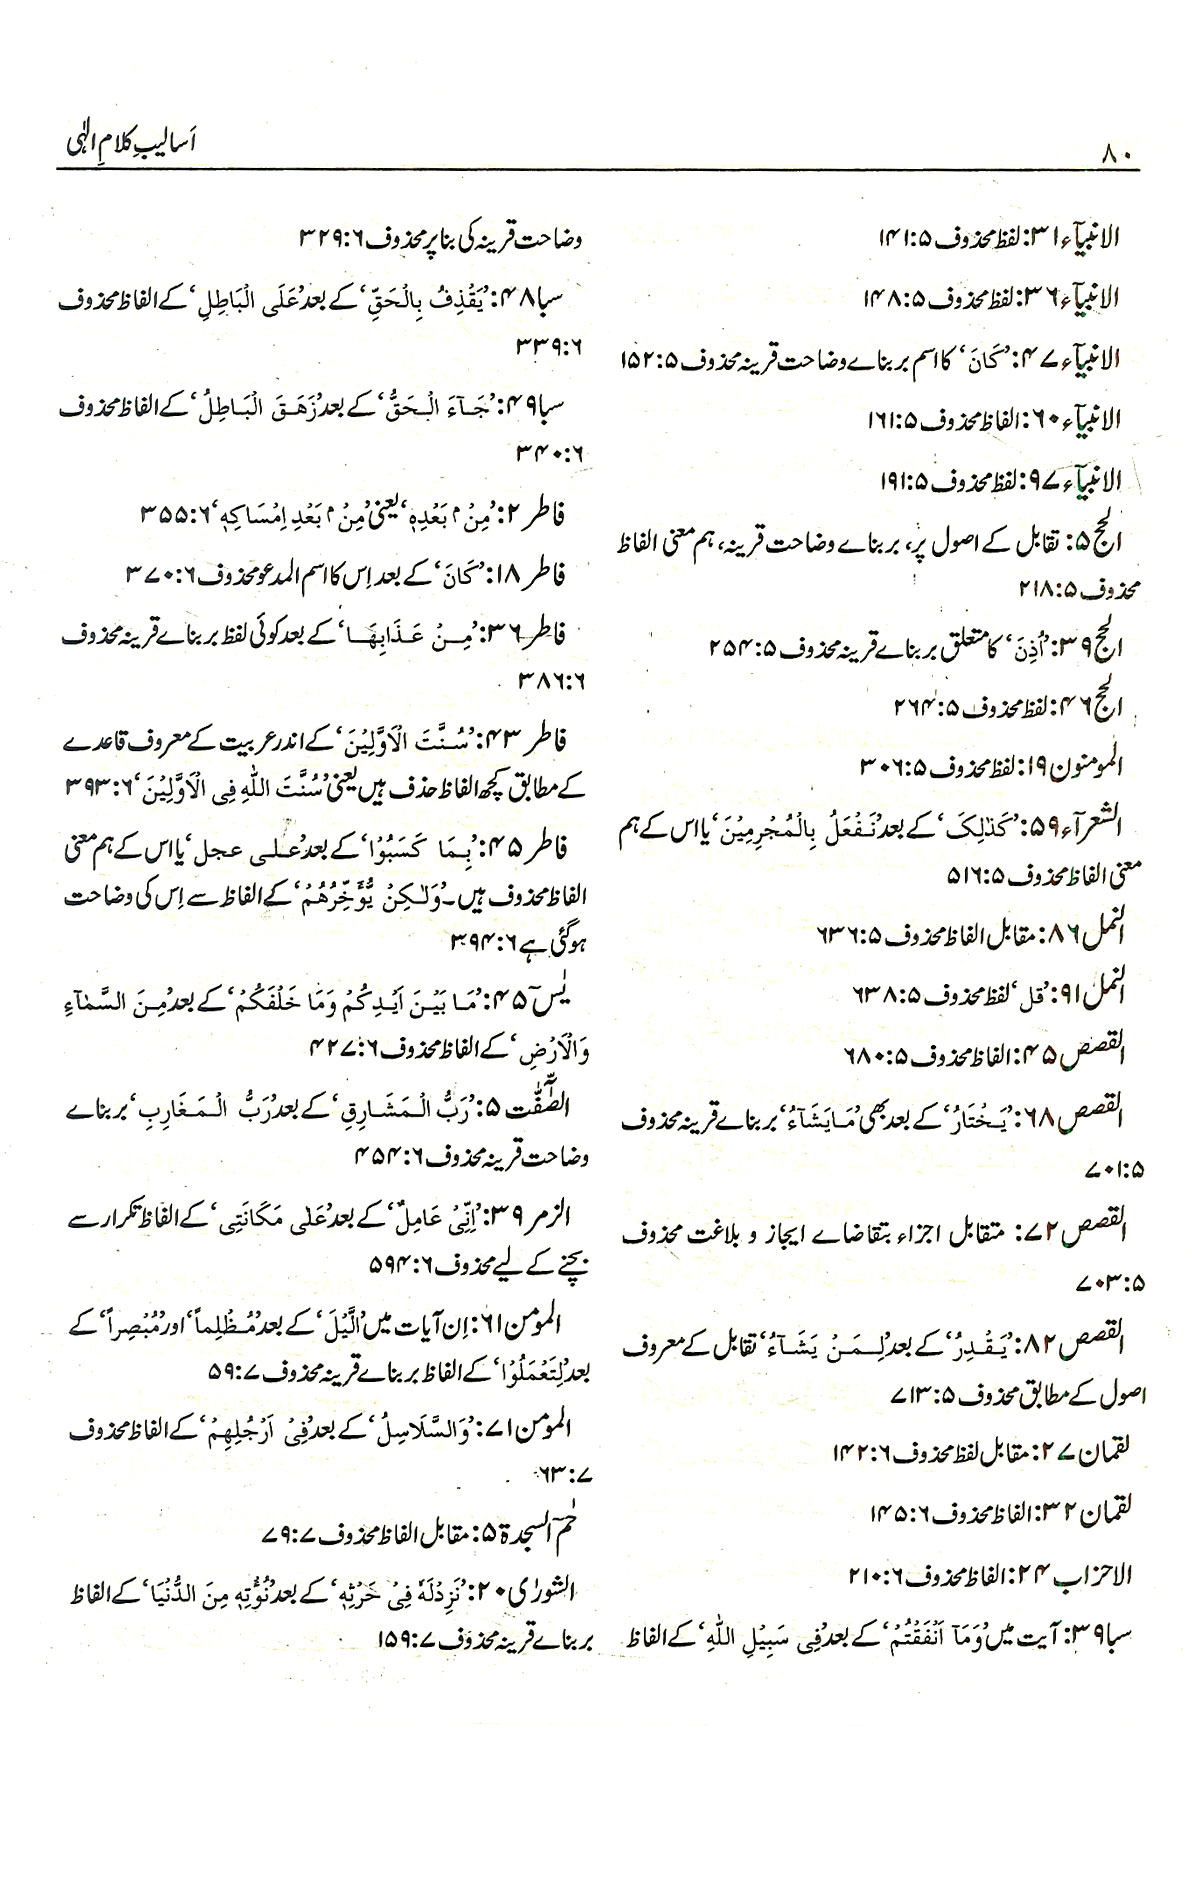 ۸۰
اَسالیبِ کلامِ الٰہی
الانبیآء ۳۱: لفظ محذوف ۵:۱۴۱
الانبیآء ۳۶: لفظ محذوف ۵:۱۴۸
الانبیآء ۴۷: ’کَانَ‘ کا اسم بر بناے وضاحت قرینہ محذوف ۵:۱۵۲
الانبیآء ۶۰: الفاظ محذوف ۵:۱۶۱
الانبیآء ۹۷: لفظ محذوف ۵:۱۹۱
الحج ۵: تقابل کے اصول پر، بر بناے وضاحت قرینہ، ہم معنی الفاظ
محذوف ۵:۲۱۸
الحج ۳۹: ’اُذِنَ‘ کا متعلق بر بناے قرینہ محذوف ۵:۲۵۴
الحج ۴۶: لفظ محذوف ۵:۲۶۴
المومنون ۱۹: لفظ محذوف ۵:۳۰۶
الشعرآء ۵۹: ’کَذٰلِکَ‘ کے بعد ’نَفْعَلُ بِالْمُجْرِمِیْنَ‘ یا اس کے ہم
معنی الفاظ محذوف ۵:۵۱۶
النمل ۸۶: مقابل الفاظ محذوف ۵:۶۳۶
النمل ۹۱: ’قل‘ لفظ محذوف ۵:۶۳۸
القصص ۴۵: الفاظ محذوف ۵:۶۸۰
القصص ۶۸: ’یَخْتَارُ‘ کے بعد بھی ’مَا یَشَآءُ‘ بر بناے قرینہ محذوف
۵:۷۰۱
القصص ۷۲: متقابل اجزاء بتقاضاے ایجاز و بلاغت محذوف
۵:۷۰۳
القصص ۸۲: ’یَقْدِرُ‘ کے بعد ’لِمَنْ یَشَآءُ‘ تقابل کے معروف
اصول کے مطابق محذوف ۵:۷۱۳
لقمان ۲۷: مقابل لفظ محذوف ۶:۱۴۲
لقمان ۳۲: الفاظ محذوف ۶:۱۴۵
الاحزاب ۲۴: الفاظ محذوف ۶:۲۱۰
سبا ۳۹: آیت میں ’وَمَآ اَنْفَقْتُمْ‘ کے بعد ’فِی سَبِیْلِ اللّٰہِ‘ کے الفاظ
وضاحت قرینہ کی بنا پر محذوف ۶:۳۲۹
سبا ۴۸: ’یَقْذِفُ بِالْحَقِّ‘ کے بعد ’عَلَی الْبَاطِلِ‘ کے الفاظ محذوف
۶:۳۳۹
سبا ۴۹: ’جَآءَ الْحَقُّ‘ کے بعد ’زَھَقَ الْبَاطِلُ‘ کے الفاظ محذوف
۶:۳۴۰
فاطر ۲: ’مِنْ م بَعْدِہٖ‘ یعنی ’مِنْ م بَعْدِ اِمْسَاکِہٖ‘ ۶:۳۵۵
فاطر ۱۸: ’کَانَ‘ کے بعد اِس کا اسم المدعو محذوف ۶:۳۷۰
فاطر ۳۶: ’مِنْ عَذَابِھَا‘ کے بعد کوئی لفظ بر بناے قرینہ محذوف
۶:۳۸۶
فاطر ۴۳: ’سُنَّتَ الْاَوَّلِیْنَ‘ کے اندر عربیت کے معروف قاعدے
کے مطابق کچھ الفاظ حذف ہیں یعنی ’سُنَّتَ اللّٰہِ فِی الْاَوَّلِیْنَ‘ ۶:۳۹۳
فاطر ۴۵: ’بِمَا کَسَبُوْا‘ کے بعد ’علی عجل‘ یا اس کے ہم معنی
الفاظ محذوف ہیں۔ ’وَلٰکِنْ یُّؤَخِّرُھُمْ‘ کے الفاظ سے اِس کی وضاحت
ہوگئی ہے ۶:۳۹۴
یٰسٓ ۴۵: ’مَا بَیْنَ اَیْدِکُمْ وَمَا خَلْفَکُمْ‘ کے بعد ’مِنَ السَّمَآءِ
وَالْاَرْضِ‘ کے الفاظ محذوف ۶:۴۲۷
الصّٰٓفّٰت ۵: ’رَبُّ الْمَشَارِقِ‘ کے بعد ’رَبُّ الْمَغَارِبِ‘ بر بناے
وضاحت قرینہ محذوف ۶:۴۵۴
الزمر ۳۹: ’اِنِّیْ عَامِلٌ‘ کے بعد ’عَلٰی مَکَانَتِی‘ کے الفاظ تکرار سے
بچنے کے لیے محذوف ۶:۵۹۴
المومن ۶۱: اِن آیات میں ’الَّیْلَ‘ کے بعد ’مُظْلِماً‘ اور ’مُبْصِراً‘ کے
بعد ’لِتَعْمَلُوْا‘ کے الفاظ بر بناے قرینہ محذوف ۷:۵۹
المومن ۷۱: ’وَالسَّلَاسِلُ‘ کے بعد ’فِیْ اَرْجُلِھِمْ‘ کے الفاظ محذوف
۷:۶۳
حٰمٓ السجدۃ ۵: مقابل الفاظ محذوف ۷:۷۹
الشورٰی ۲۰: ’نَزِدْلَہٗ فِیْ حَرْثِہٖ‘ کے بعد ’نُؤْتِہٖ مِنَ الدُّنْیَا‘ کے الفاظ
بر بناے قرینہ محذوف ۷:۱۵۹